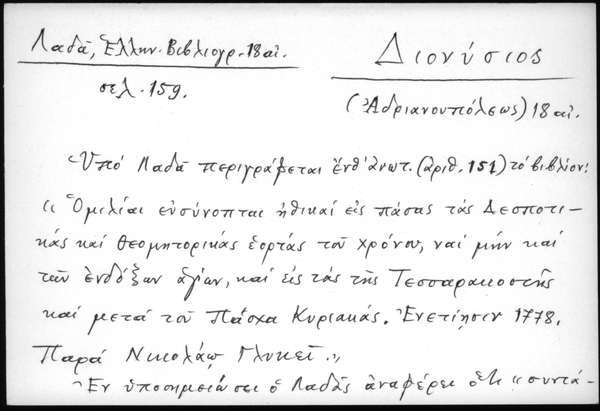 Λαδᾶ, Ἑλλην. Βιβλιογρ. 18 αἰ.
σελ. 159.
Διονύσιος
(Ἀδριανουπόλεως) 18 αἰ.
Ὑπό Λαδᾶ περιγράφεται ἔνθ' ἀνωτ. (ἀριθ. 151) τό βιβλίον:
« Ὁμιλίαι εὐσύνοπται ἠθικαί εἰς πάσας τάς Δεσποτι-
κάς καί θεομητορικάς ἑορτάς τοῦ χρόνου, ναί μήν καί
τῶν ἐνδόξων ἁγίων, καί εἰς τάς τῆς Τεσσαρακοστῆς
καί μετά τοῦ Πάσχα Κυριακάς. Ἐνετίησιν 1778.
Παρά Νικολάῳ Γλυκεῖ.»
Ἐν ὑποσημειώσει ὁ Λαδᾶς ἀναφέρει ὅτι «συντά-